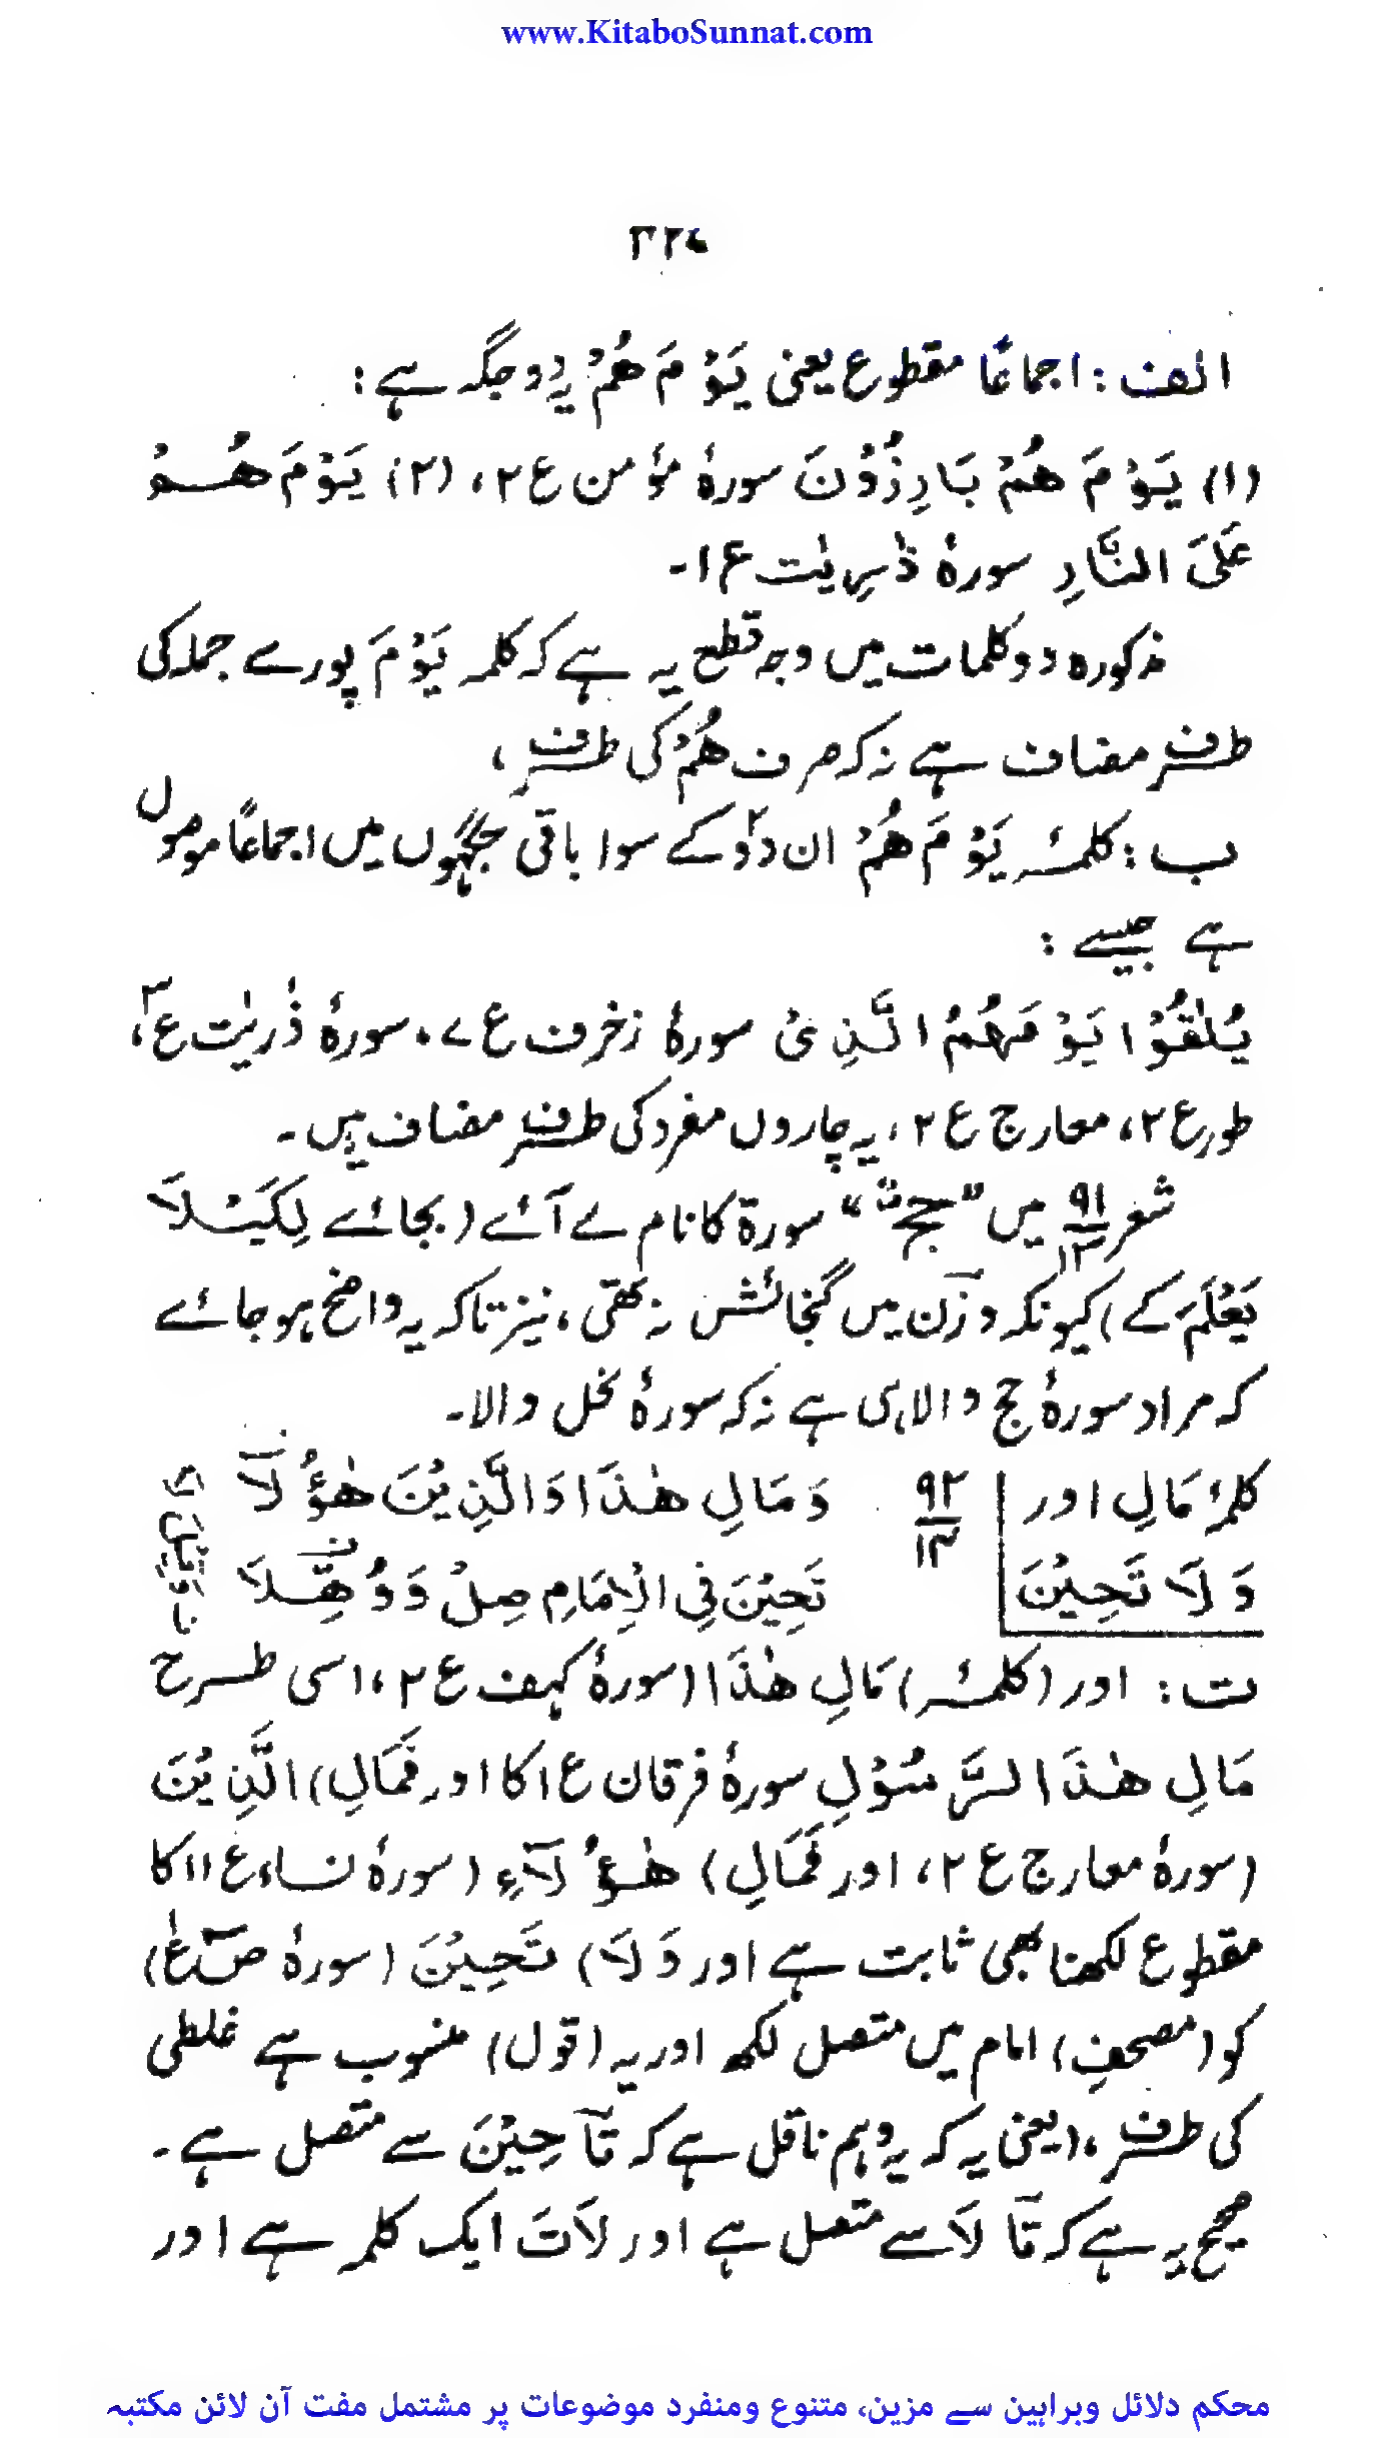 www.KitaboSunnat.com
الف : اجماعًا مقطوع یعنی یَوْمَ هُمْ یہ دو جگہ ہے :
(۱) یَوْمَ هُمْ بَارِزُوْنَ سورۂ مؤمن ع ۲، (۲) یَوْمَ هُمْ
عَلَی النَّارِ سورۂ ذٰریٰت ع ۱۔
مذکورہ دو کلمات میں وجہ قطع یہ ہے کہ کلمہ یَوْمَ پورے جملہ کی
طرف مضاف ہے نہ کہ صرف هُمْ کی طرف،
ب : کلمۂ یَوْمَ هُمْ ان دو کے سوا باقی جگہوں میں اجماعًا موصول
ہے جیسے :
یُلٰقُوْا یَوْمَهُمُ الَّذِیْ سورۂ زخرف ع ۷، سورۂ ذٰریٰت ع ۳،
طور ع ۲، معارج ع ۲، یہ چاروں مفرد کی طرف مضاف ہیں۔
شعر ۹۱/۱۳ میں "حجٌ" سورۃ کا نام لے آئے (بجائے لِکَیْلَا
یَعْلَمَ کے) کیونکہ وزن میں گنجائش نہ تھی، نیز تاکہ یہ واضح ہو جائے
کہ مراد سورۂ حج والا ہی ہے نہ کہ سورۂ نحل والا۔
کلمۂ مَالِ اور ۹۲/۱۴ وَمَالِ هٰذَا وَالَّذِیْنَ هٰؤُلَآ
وَلَا تَحِیْنَ تَحِیْنَ فِی الْاِمَامِ صِلْ وَوُهِّلَا
ت : اور (کلمۂ) مَالِ هٰذَا (سورۂ کہف ع ۲، اسی طرح
مَالِ هٰذَا الرَّسُوْلِ سورۂ فرقان ع ۱ کا اور فَمَالِ) الَّذِیْنَ
(سورۂ معارج ع ۲، اور فَمَالِ) هٰؤُلَآءِ (سورۂ نساء ع ۱۱ کا
مقطوع لکھنا بھی ثابت ہے اور وَلَا) تَحِیْنَ (سورۂ صٓ ع ۱)
کو (مصحفِ) امام میں متصل لکھ اور یہ (قول) منسوب ہے غلطی
کی طرف، (یعنی یہ کہ یہ وہم ناقل ہے کہ تآ حِیْنَ سے متصل ہے۔
صحیح یہ ہے کہ تآ لَا سے متصل ہے اور لَاتَ ایک کلمہ ہے اور
محکم دلائل وبراہین سے مزین، متنوع ومنفرد موضوعات پر مشتمل مفت آن لائن مکتبہ